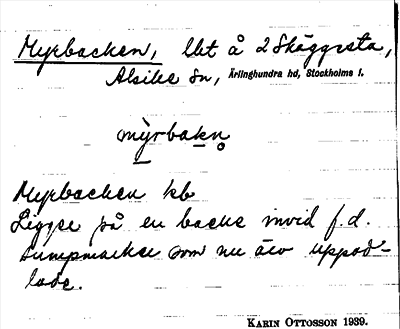 Myrbacken, lbt å 2 Skäggesta,
Alsike sn, Ärlinghundra hd, Stockholms l.
myrbakn
Myrbacken kb
Ligger på en backe invid f.d.
sumpmarker som nu äro uppod-
lade.
KARIN OTTOSSON 1939.